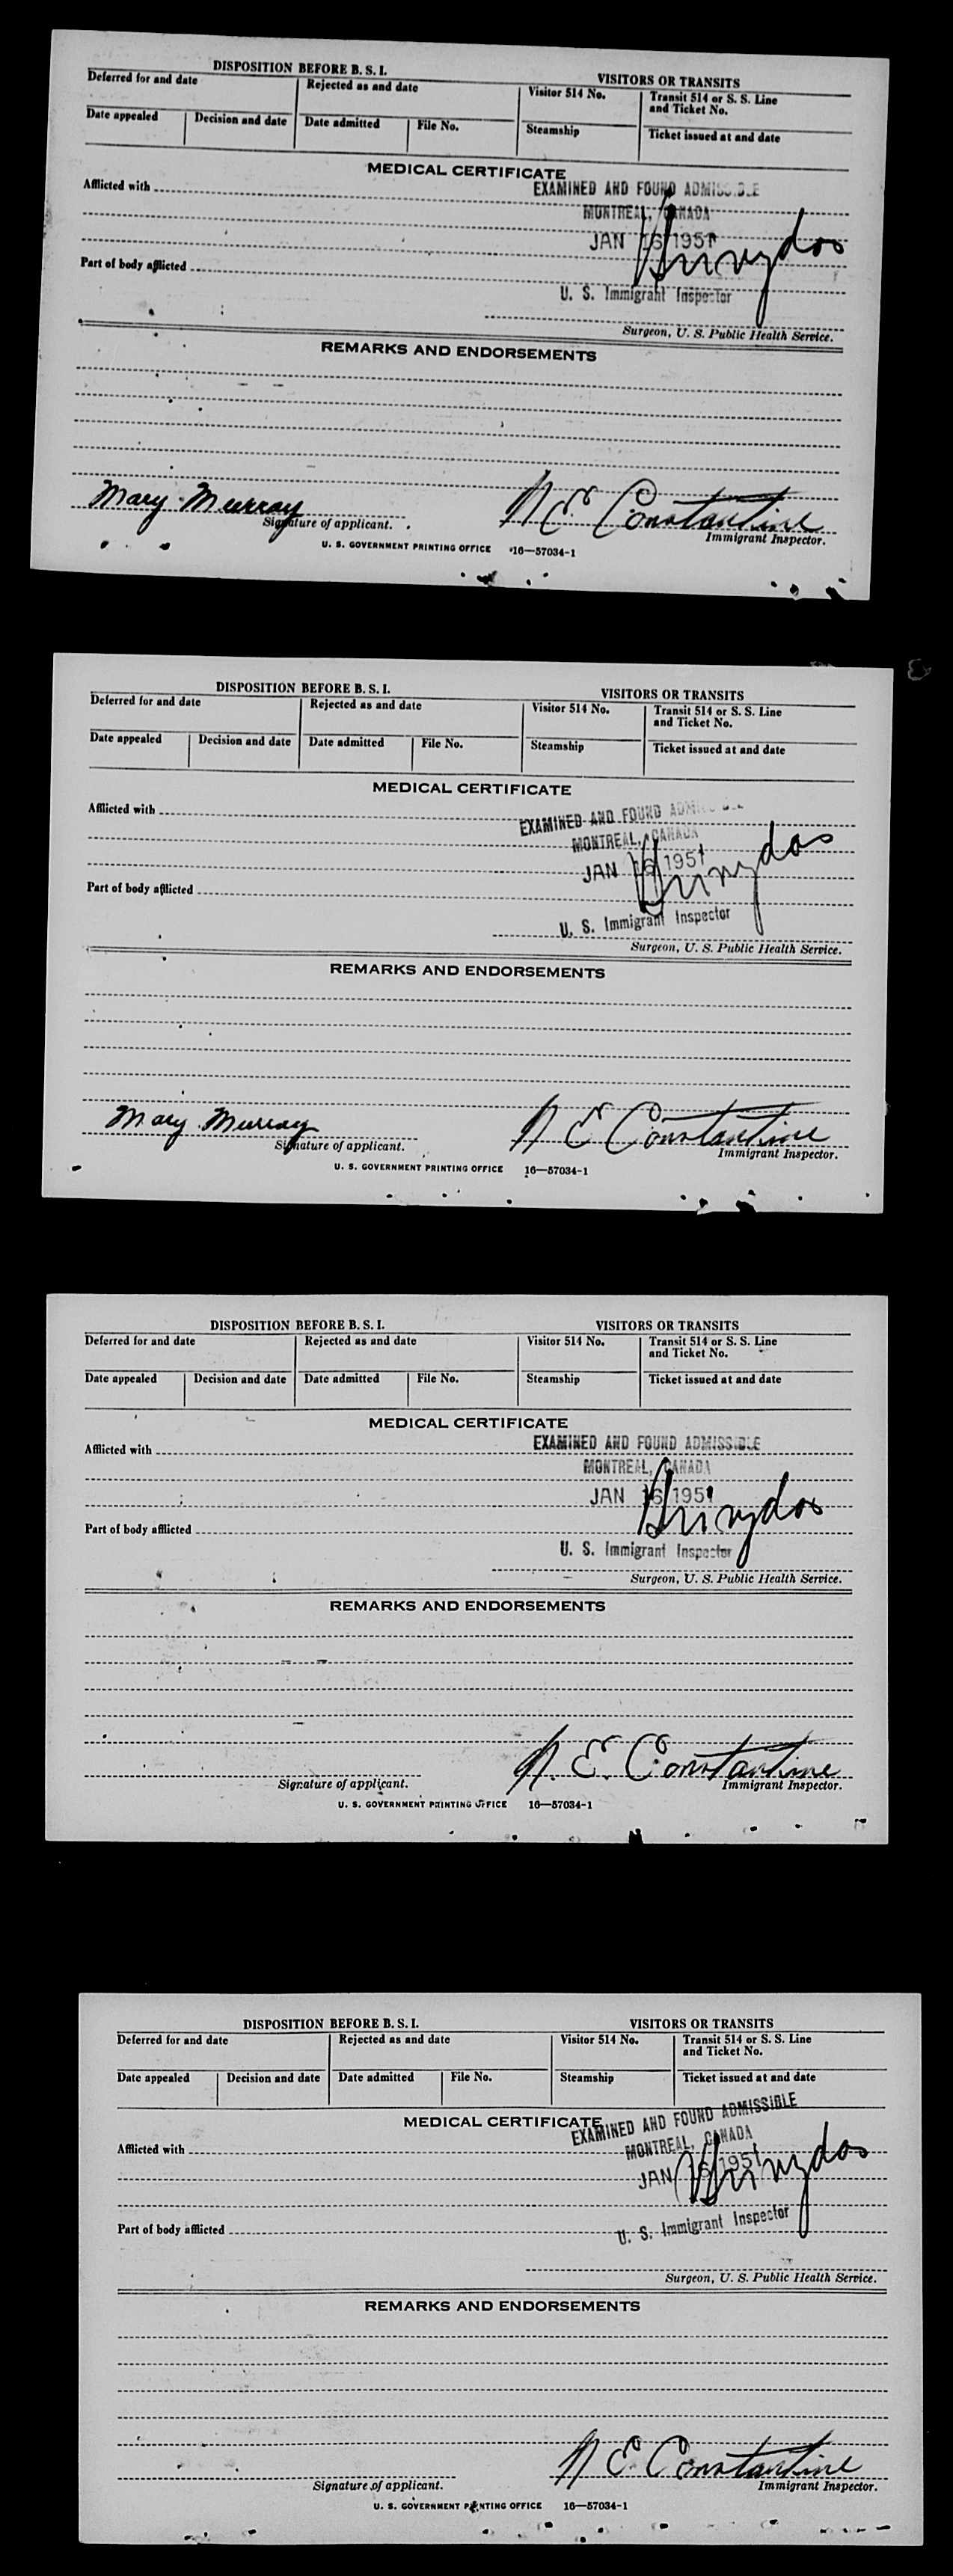 DISPOSITION BEFORE B. S. I. VISITORS OR TRANSITS
Deferred for and date Rejected as and date Visitor 514 No. Transit 514 or S. S. Line
and Ticket No.
Date appealed Decision and date Date admitted File No. Steamship Ticket issued at and date
MEDICAL CERTIFICATE
EXAMINED AND FOUND ADMISSIBLE
Afflicted with
MONTREAL, CANADA
JAN 16 1951
Part of body afflicted
U. S. Immigrant Inspector
Surgeon, U. S. Public Health Service.
REMARKS AND ENDORSEMENTS
Mary Murray N E Constantine
Signature of applicant. Immigrant Inspector.
U. S. GOVERNMENT PRINTING OFFICE 16—57034-1
DISPOSITION BEFORE B. S. I. VISITORS OR TRANSITS
Deferred for and date Rejected as and date Visitor 514 No. Transit 514 or S. S. Line
and Ticket No.
Date appealed Decision and date Date admitted File No. Steamship Ticket issued at and date
MEDICAL CERTIFICATE
Afflicted with EXAMINED AND FOUND ADMISSIBLE
MONTREAL, CANADA
JAN 16 1951
Part of body afflicted
U. S. Immigrant Inspector
Surgeon, U. S. Public Health Service.
REMARKS AND ENDORSEMENTS
Mary Murray N E Constantine
Signature of applicant. Immigrant Inspector.
U. S. GOVERNMENT PRINTING OFFICE 16—57034-1
DISPOSITION BEFORE B. S. I. VISITORS OR TRANSITS
Deferred for and date Rejected as and date Visitor 514 No. Transit 514 or S. S. Line
and Ticket No.
Date appealed Decision and date Date admitted File No. Steamship Ticket issued at and date
MEDICAL CERTIFICATE
Afflicted with EXAMINED AND FOUND ADMISSIBLE
MONTREAL, CANADA
JAN 16 1951
Part of body afflicted
U. S. Immigrant Inspector
Surgeon, U. S. Public Health Service.
REMARKS AND ENDORSEMENTS
N. E. Constantine
Signature of applicant. Immigrant Inspector.
U. S. GOVERNMENT PRINTING OFFICE 16—57034-1
DISPOSITION BEFORE B. S. I. VISITORS OR TRANSITS
Deferred for and date Rejected as and date Visitor 514 No. Transit 514 or S. S. Line
and Ticket No.
Date appealed Decision and date Date admitted File No. Steamship Ticket issued at and date
MEDICAL CERTIFICATE EXAMINED AND FOUND ADMISSIBLE
Afflicted with MONTREAL, CANADA
JAN 16 1951
Part of body afflicted
U. S. Immigrant Inspector
Surgeon, U. S. Public Health Service.
REMARKS AND ENDORSEMENTS
N E Constantine
Signature of applicant. Immigrant Inspector.
U. S. GOVERNMENT PRINTING OFFICE 16—57034-1